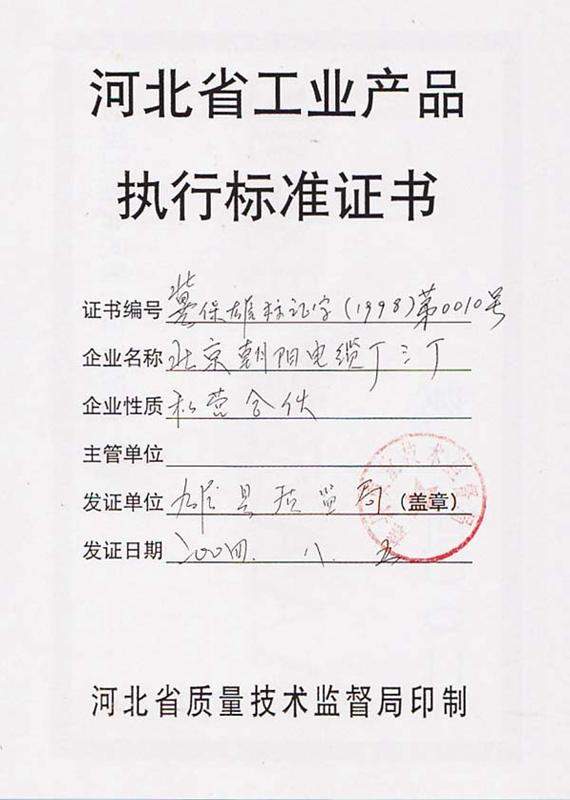 河北省工业产品
执行标准证书
证书编号 冀保雄标证字(1998)第0010号
企业名称 北京朝阳电缆厂三厂
企业性质 私营合伙
主管单位
发证单位 雄县质监局 (盖章)
发证日期 二00四. 八. 五
河北省质量技术监督局印制